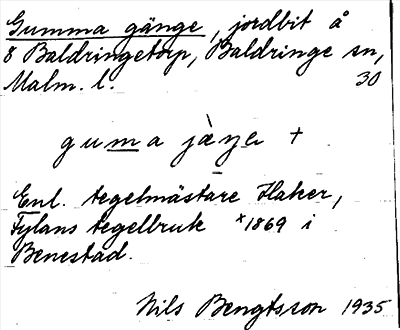 Gumma gänge, jordbit å
8 Baldringetorp, Baldringe sn,
Malm. l. 30
guma jäŋe +
Enl. tegelmästare Haker,
Fylans tegelbruk *1869 i
Benestad.
Nils Bengtsson 1935